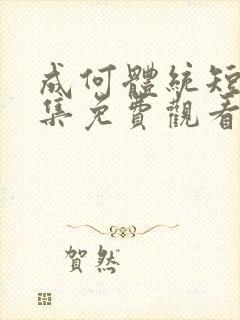 成何體統短
集免費觀看
賀然